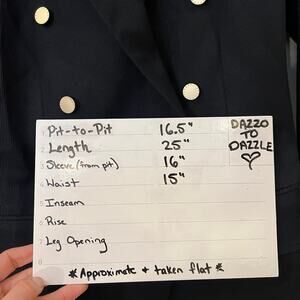 1 Pit-to-Pit 16.5"
2 Length 25"
3 Sleeve (from pit) 16"
4 Waist 15"
5 Inseam
6 Rise
7 Leg Opening
8
DAZZO
TO
DAZZLE
♡
*Approximate + taken flat*